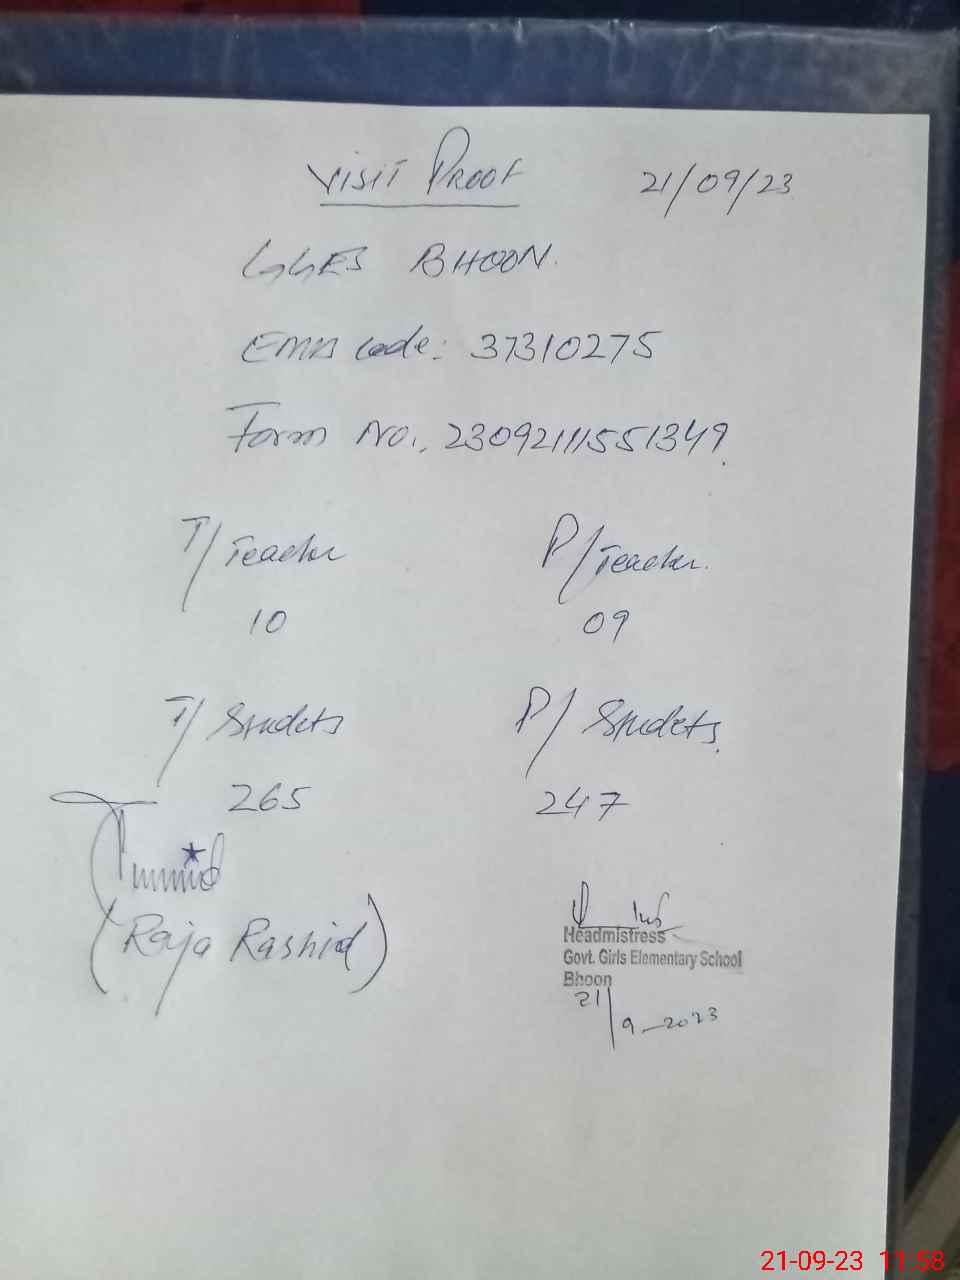 VISIT PROOF 21/09/23
GGES BHOON.
EMIS Code: 37310275
Form No. 23092111551349.
T/Teacher P/Teacher.
10 09
T/Studets P/Studets.
265 247
(Raja Rashid)
Headmistress
Govt. Girls Elementary School
Bhoon
21/9-2023
21-09-23 11:58